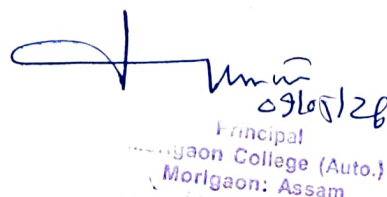 09/05/26
Principal
gaon College (Auto.)
Morigaon: Assam